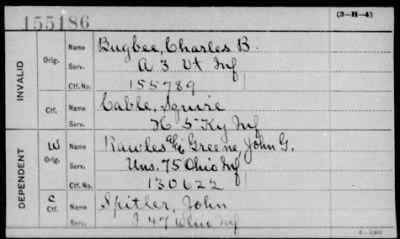 155186
(3-H-4)
INVALID
Orig. Name Bugbee, Charles B.
Serv. A 3 Vt Inf
Ctf. No. 155789
Ctf. Name Cable, Squire
Serv. K 5 Ky Inf
DEPENDENT
W Orig. Name Rawles Greene, John G.
Serv. Uns. 75 Ohio Inf
Ctf. No. 130622
C Ctf. Name Spitler, John
Serv. I 47 Ohio Inf